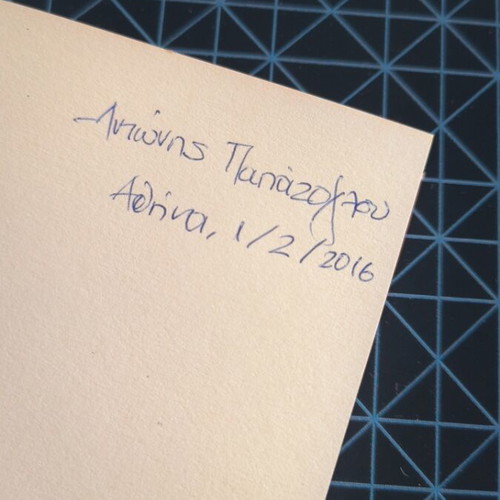 Αντώνης Παπάζογλου
Αθήνα, 1/2/2016